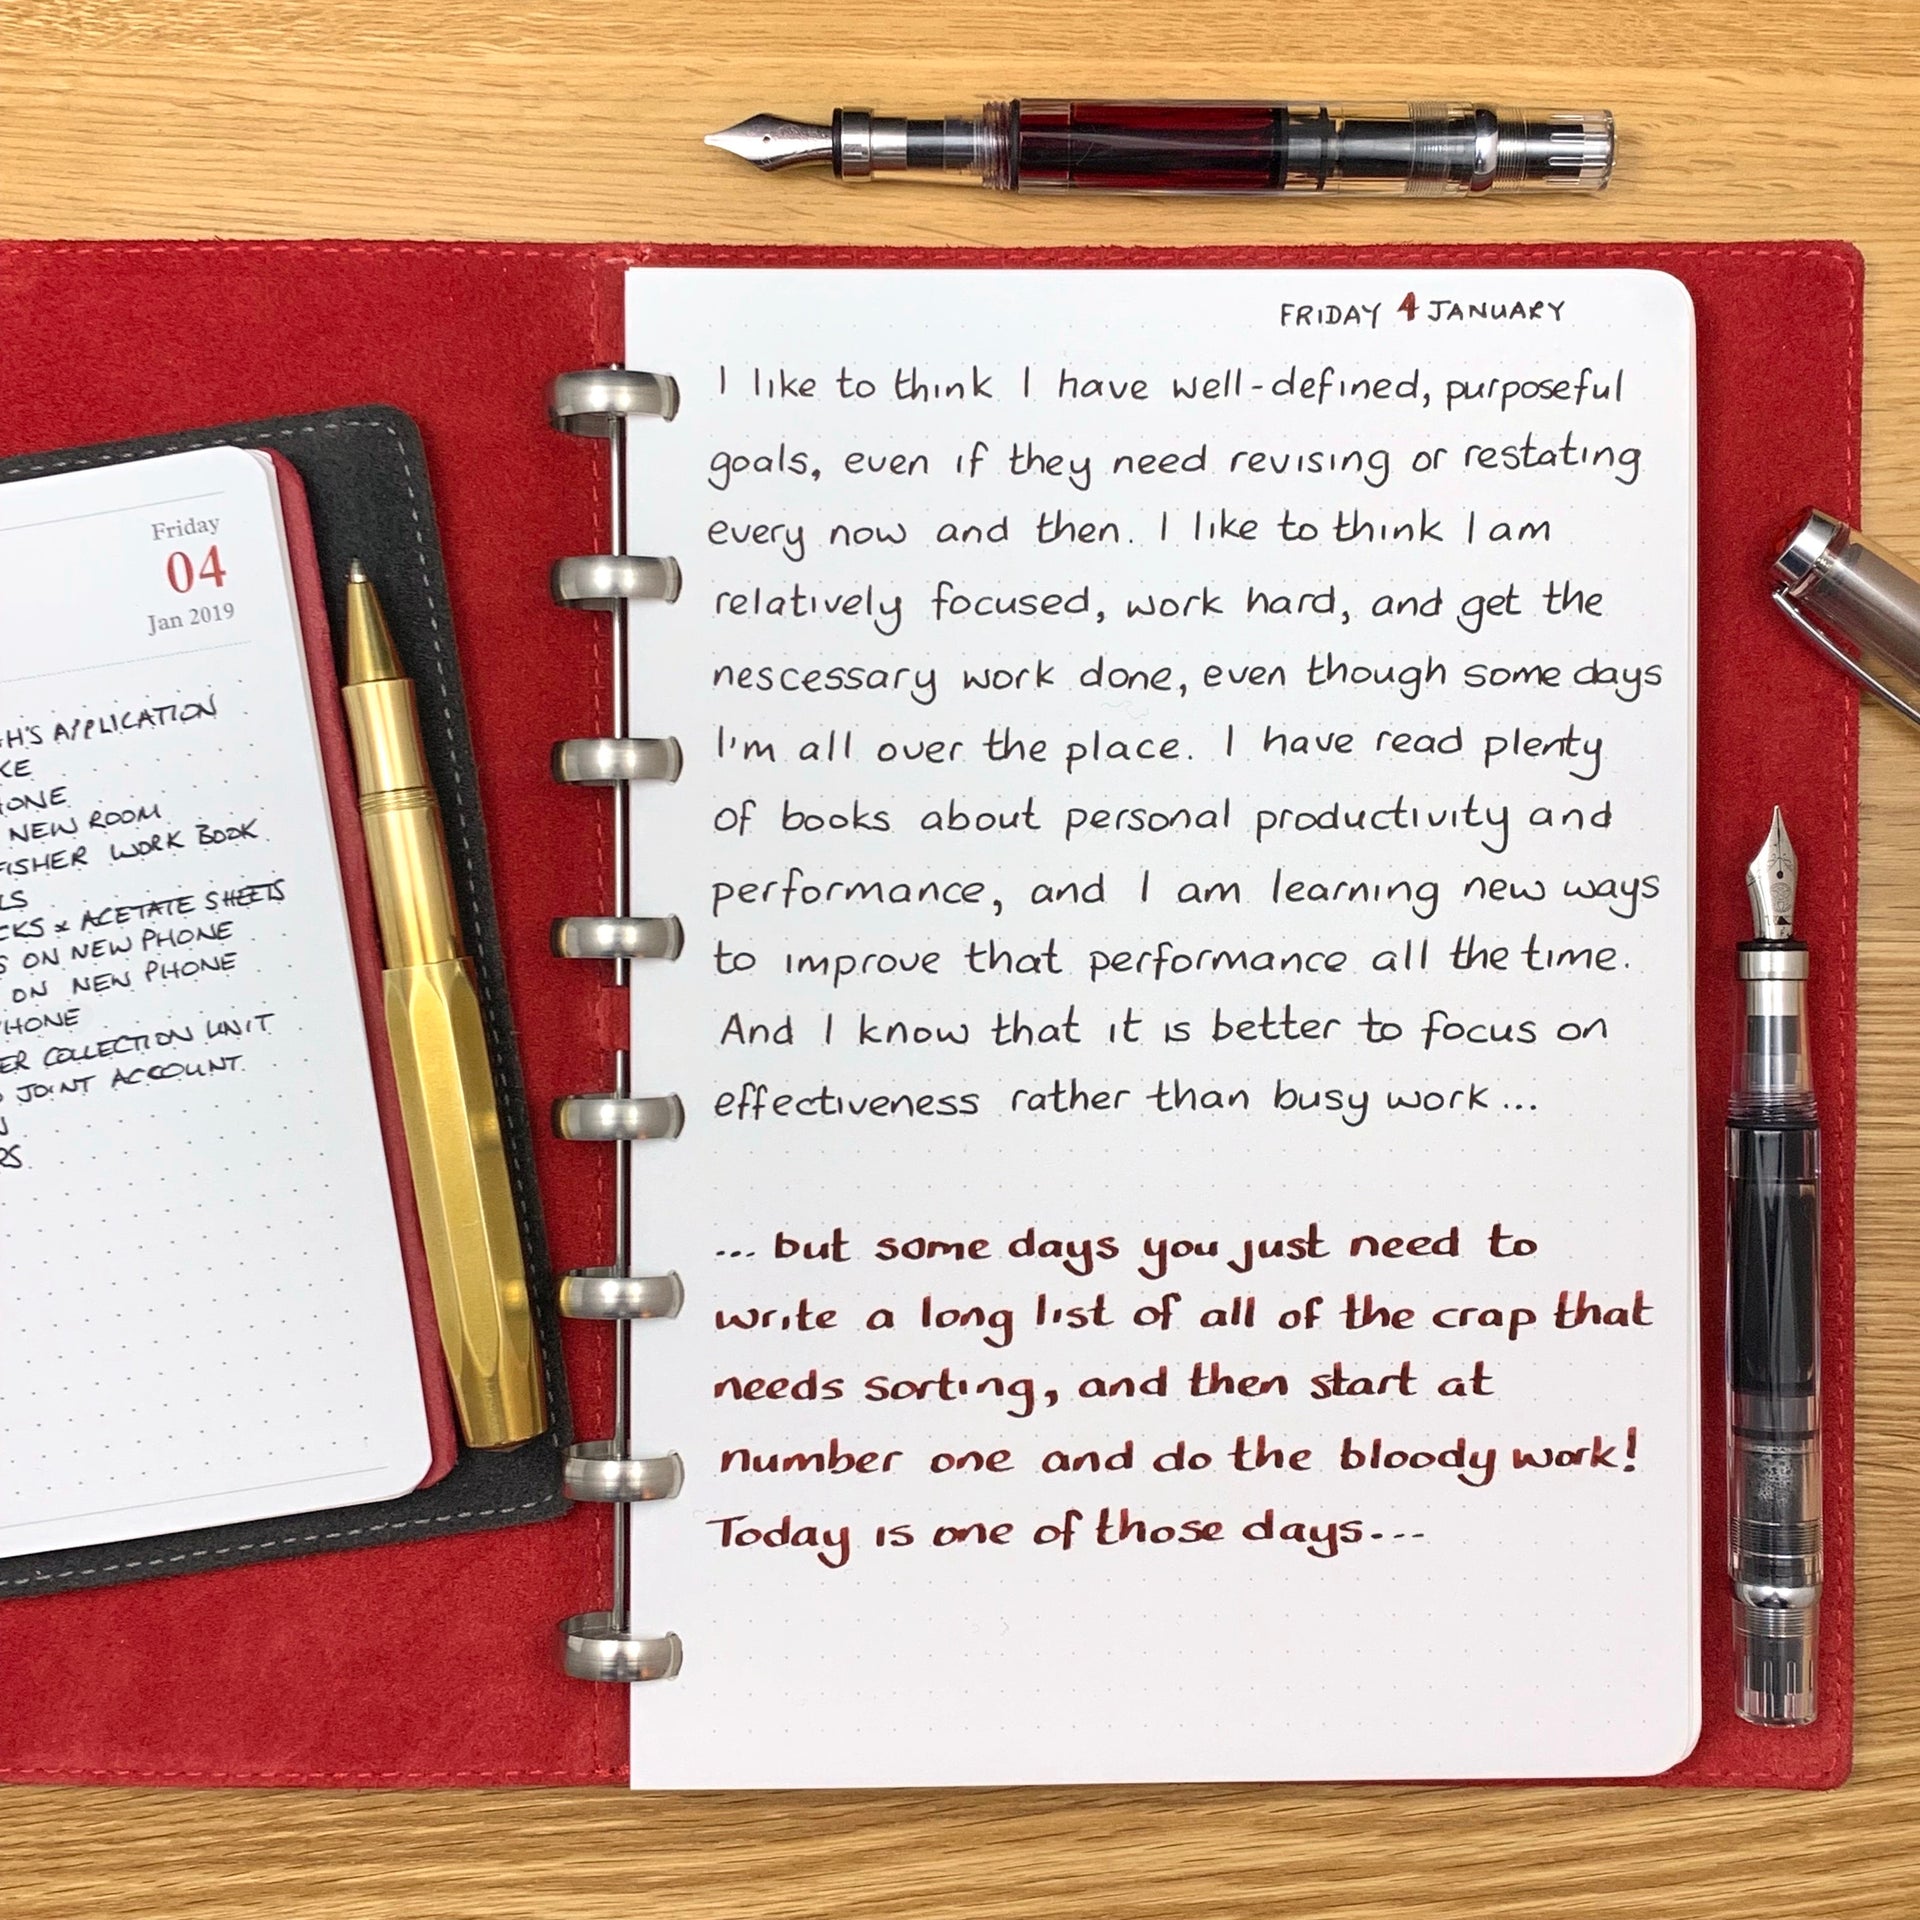 Friday
04
Jan 2019
H'S APPLICATION
KE
ONE
NEW ROOM
FISHER WORK BOOK
LS
CKS & ACETATE SHEETS
S ON NEW PHONE
ON NEW PHONE
HONE
ER COLLECTION UNIT
JOINT ACCOUNT
N
RS
FRIDAY 4 JANUARY
I like to think I have well-defined, purposeful
goals, even if they need revising or restating
every now and then. I like to think I am
relatively focused, work hard, and get the
nescessary work done, even though some days
I'm all over the place. I have read plenty
of books about personal productivity and
performance, and I am learning new ways
to improve that performance all the time.
And I know that it is better to focus on
effectiveness rather than busy work...
... but some days you just need to
write a long list of all of the crap that
needs sorting, and then start at
number one and do the bloody work!
Today is one of those days...